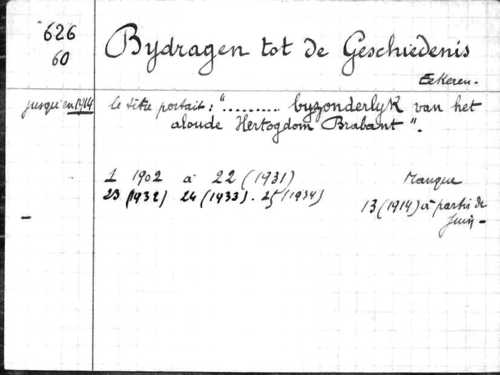 626
60
Bydragen tot de Geschiedenis
Eekeren.
jusqu'en 1914
le titre portait : ".......... byzonderlyk van het
aloude Hertogdom Brabant".
1 1902 à 22 (1931)
23 (1932) 24 (1933). 25 (1934)
Manque
13 (1914) à partir de
Juin -